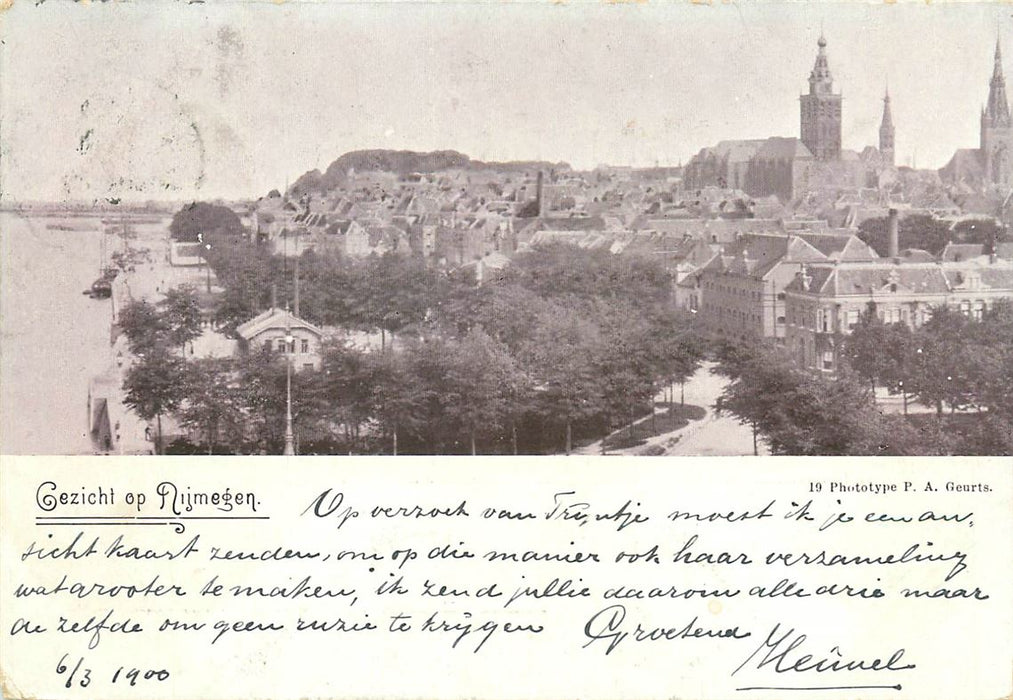 Gezicht op Nijmegen.
19 Phototype P. A. Geurts.
Op verzoek van Trijntje moest ik je een an,
sicht kaart zenden, om op die manier ook haar verzameling
wat grooter te maken, ik zend jullie daarom alle drie maar
de zelfde om geen ruzie te krijgen Groetend
Heuvel
6/3 1900